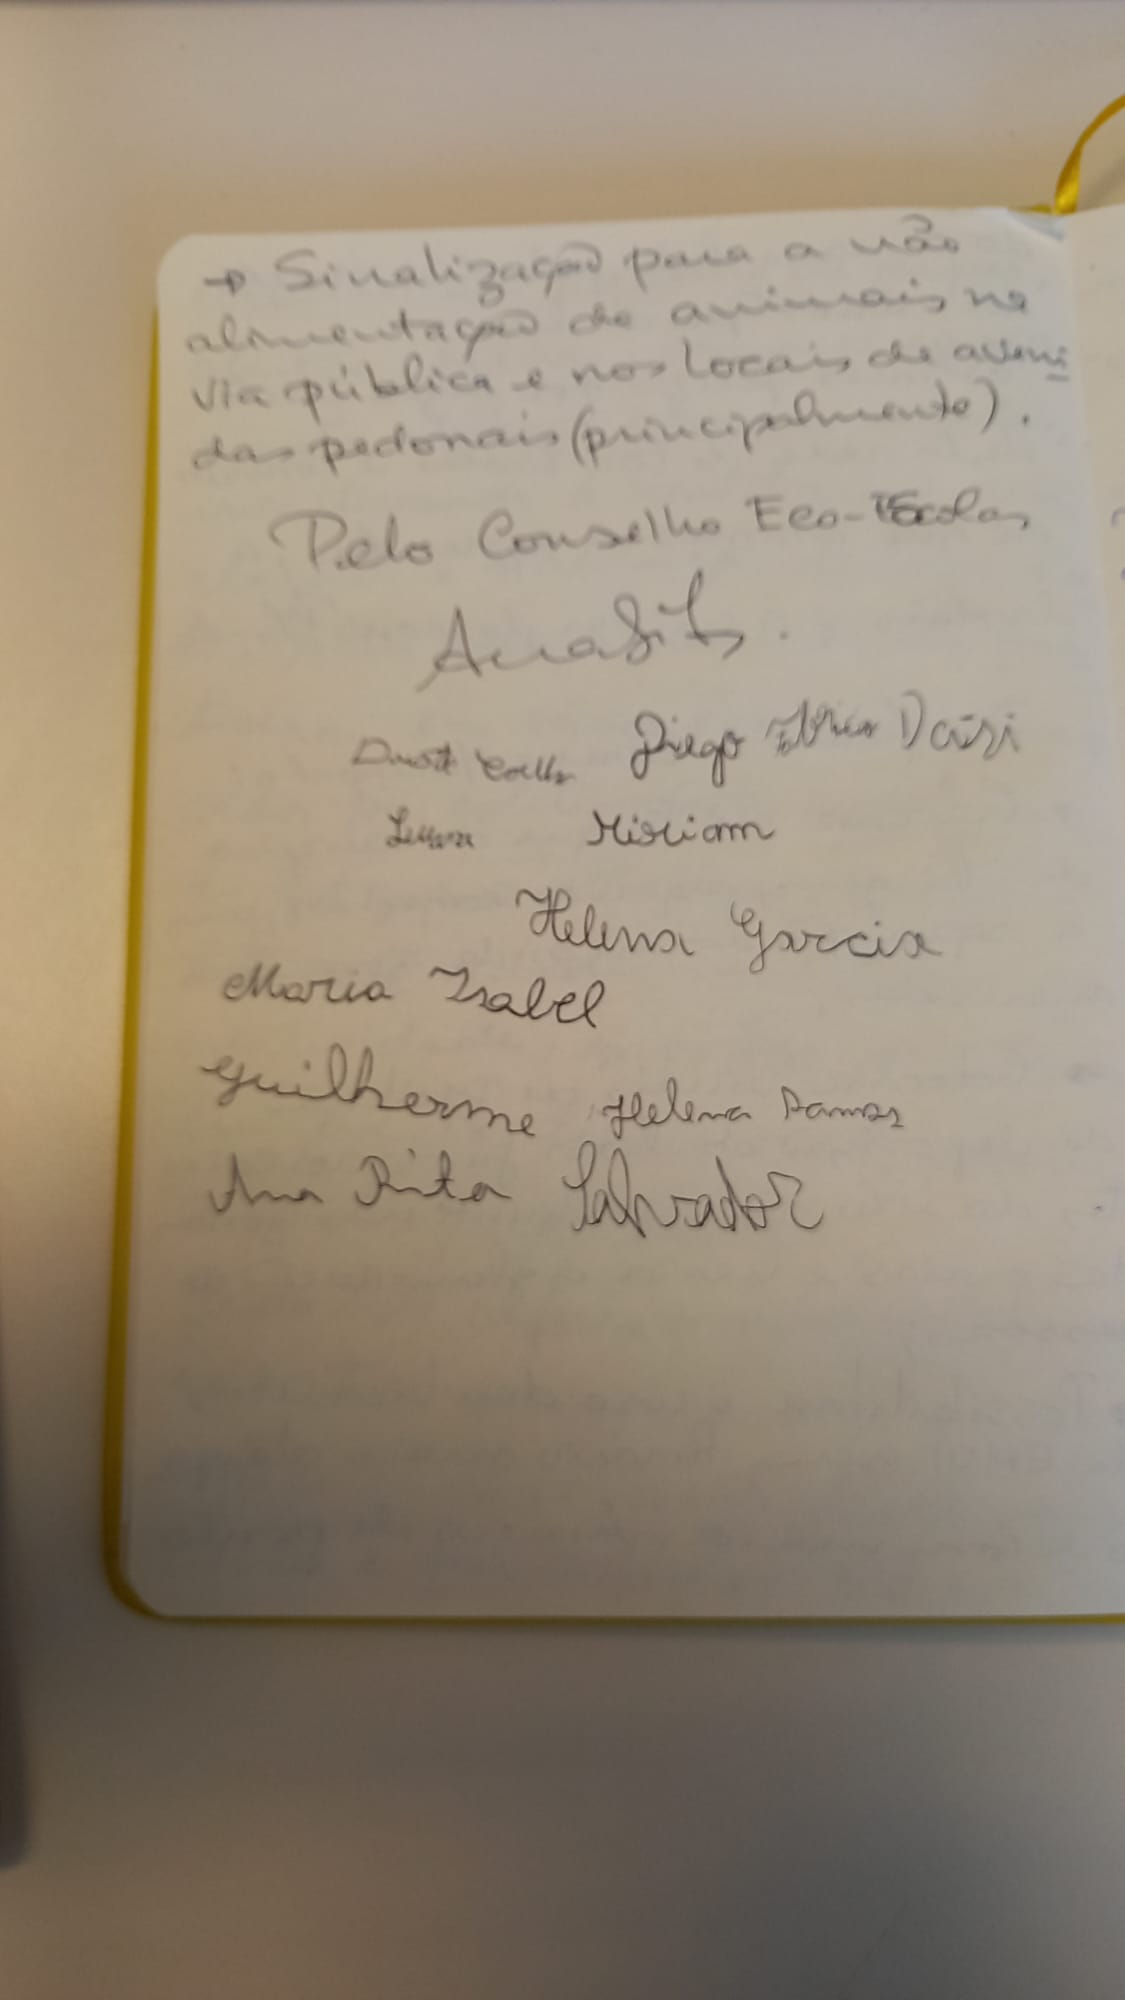 → Sinalização para a não
alimentação de animais na
via pública e nos locais de aveni
das pedonais (principalmente).
Pelo Conselho Eco-Escolas
Diego
Coelho
Miriam
Helena Garcia
Maria Isabel
Guilherme Helena Ramos
Ana Rita Salvador